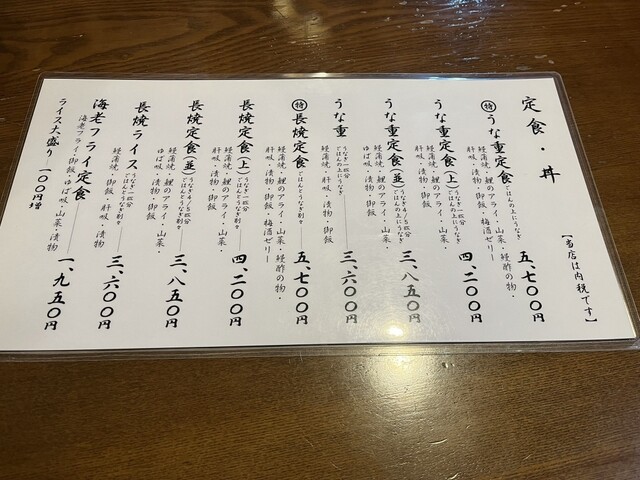 定食・丼
【当店は内税です】
㊕うな重定食 ごはんの上にうなぎ 五、七〇〇円
鰻蒲焼・鯉のアライ・山菜・鰻酢の物・
肝吸・漬物・御飯・梅酒ゼリー
うな重定食(上) うなぎ一枚分 ごはんの上にうなぎ 四、二〇〇円
鰻蒲焼・鯉のアライ・山菜・
肝吸・漬物・御飯
うな重定食(並) うなぎ4/5枚分 ごはんの上にうなぎ 三、八五〇円
鰻蒲焼・鯉のアライ・山菜・
ゆば吸・漬物・御飯
うな重 うなぎ一枚分 ごはんの上にうなぎ 三、六〇〇円
鰻蒲焼・肝吸・漬物・御飯
㊕長焼定食 ごはんとうなぎ別々 五、七〇〇円
鰻蒲焼・鯉のアライ・山菜・鰻酢の物・
肝吸・漬物・御飯・梅酒ゼリー
長焼定食(上) うなぎ一枚分 ごはんとうなぎ別々 四、二〇〇円
鰻蒲焼・鯉のアライ・山菜・
肝吸・漬物・御飯
長焼定食(並) うなぎ4/5枚分 ごはんとうなぎ別々 三、八五〇円
鰻蒲焼・鯉のアライ・山菜・
ゆば吸・漬物・御飯
長焼ライス うなぎ一枚分 ごはんとうなぎ別々 三、六〇〇円
鰻蒲焼・御飯・肝吸・漬物
海老フライ定食 一、九五〇円
海老フライ・御飯・ゆば吸・山菜・漬物
ライス大盛り 一〇〇円増